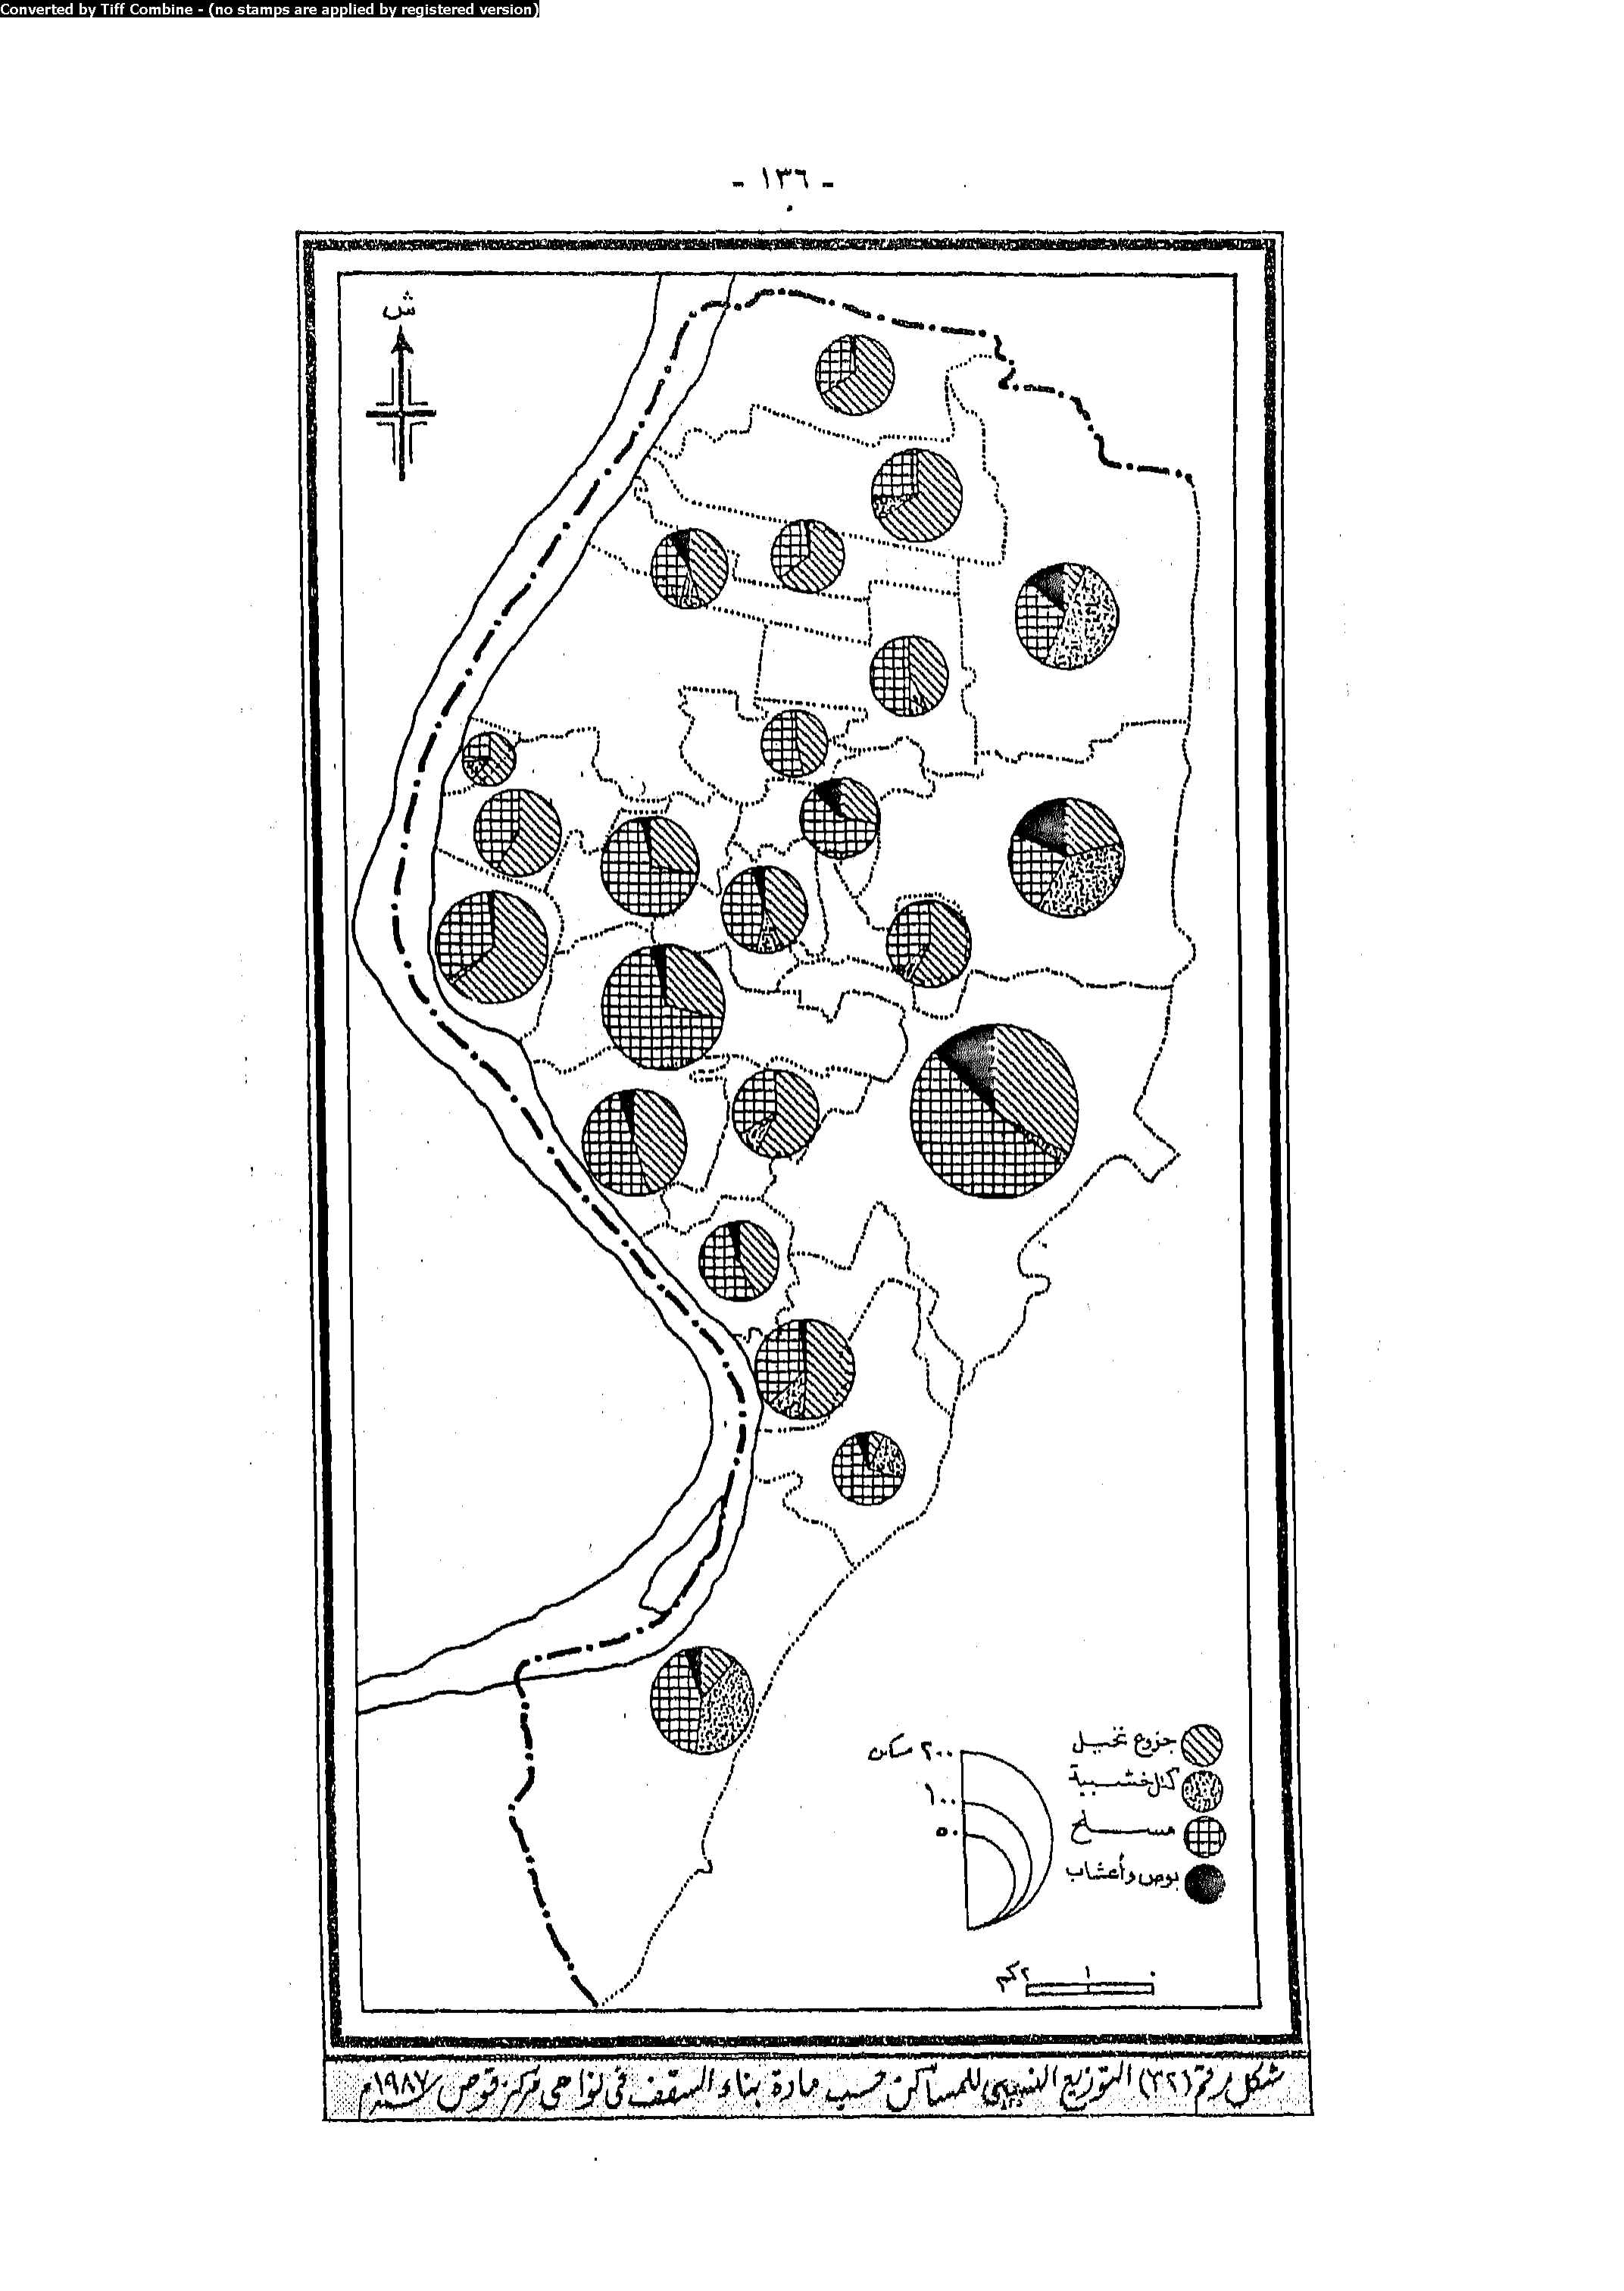 Converted by Tiff Combine - (no stamps are applied by registered version)
- ١٣٦ -
ش
جزوع نخيل
كتل خشبية
مسلح
بوص وأعشاب
٢٠٠ مسكن
١٠٠
٥٠
٠ ١ ٢ كم
شكل رقم (٣٢) التوزيع النسبى للمساكن حسب مادة بناء السقف فى نواحى مركز قوص سنة ١٩٨٧م